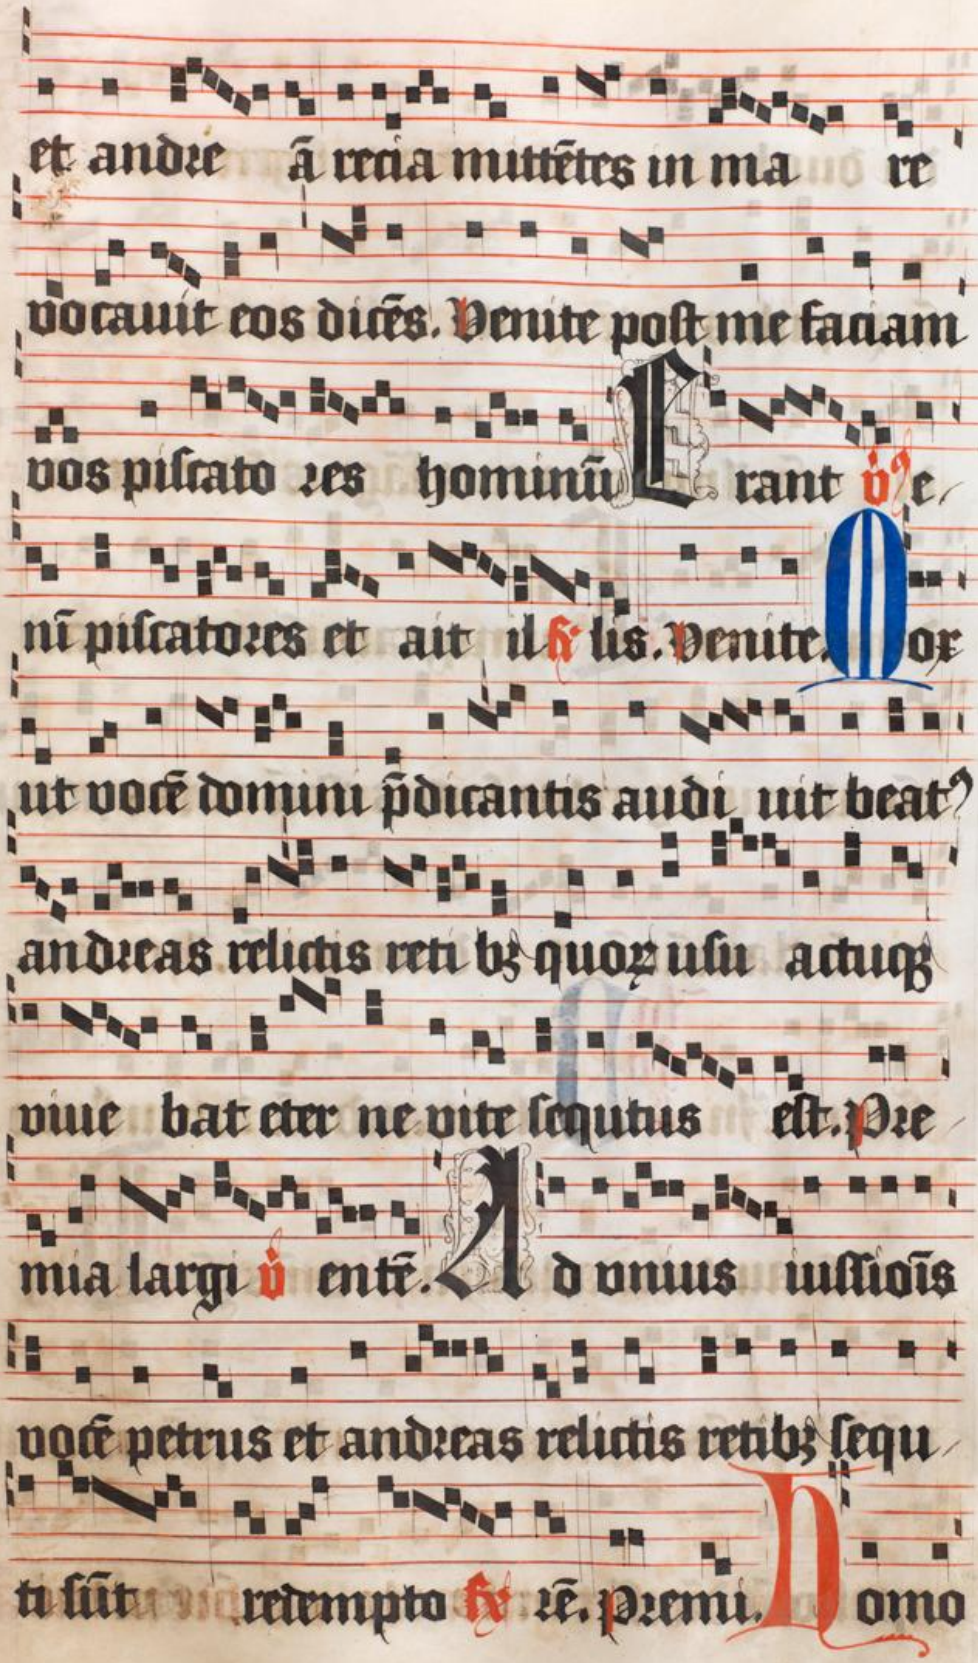 et andre ā recia mittētes in ma re
vocauit eos dicēs. Venite post me faciam
vos piscato res hominū Erant v̇ e
nī piscatores et ait il ℟ lis. Venite. Mox
ut vocē domini p̄dicantis audi uit beatꝰ
andreas relictis reti bꝫ quoꝝ usu actuqꝫ
viue bat eter ne vite secutus est. Pre
mia largi v̇ entē. Ad vnius iussiōis
vocē petrus et andreas relictis retibꝫ sequ
ti sūt redempto ℟ rē. Premi. Homo